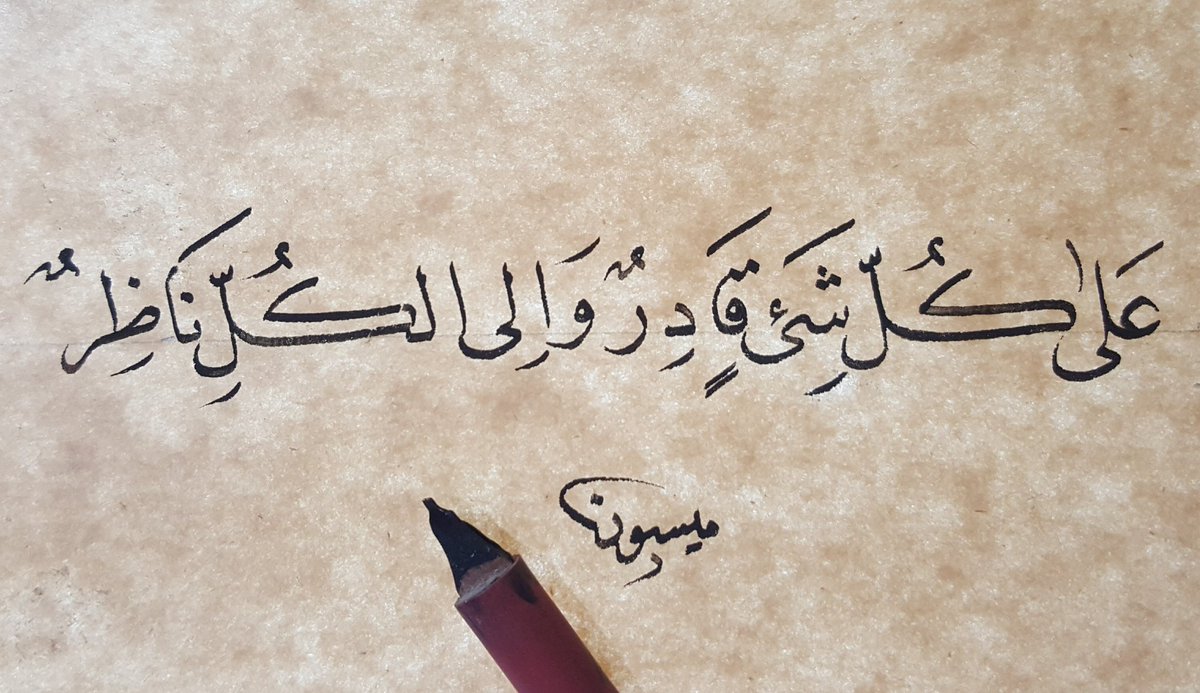 عَلىٰ كُلِّ شَیْءٍ قَادِرٌ وَاِلى الكُلِّ نَاظِرٌ
ميسون